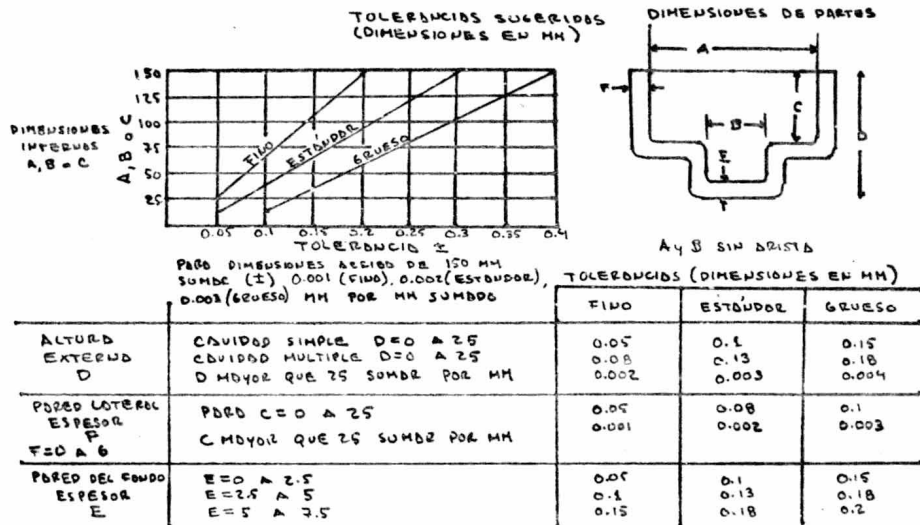 TOLERANCIAS SUGERIDAS
(DIMENSIONES EN MM)
DIMENSIONES DE PARTES
DIMENSIONES
INTERNAS
A, B o C
A, B o C
150
125
100
75
50
25
FINO
ESTÁNDAR
GRUESO
0.05 0.1 0.15 0.2 0.25 0.3 0.35 0.4
TOLERANCIA ±
A
F
C
D
B
E
A y B SIN ARISTA
PARA DIMENSIONES ARRIBA DE 150 MM
SUMAR (±) 0.001 (FINO), 0.002 (ESTANDAR),
0.003 (GRUESO) MM POR MM SUMADO
TOLERANCIAS (DIMENSIONES EN MM)
FINO ESTÁNDAR GRUESO
ALTURA
EXTERNA
D
CAVIDAD SIMPLE D=0 A 25 0.05 0.1 0.15
CAVIDAD MULTIPLE D=0 A 25 0.08 0.13 0.18
D MAYOR QUE 25 SUMAR POR MM 0.002 0.003 0.004
PARED LATERAL
ESPESOR
F
F=0 A 6
PARA C=0 A 25 0.05 0.08 0.1
C MAYOR QUE 25 SUMAR POR MM 0.001 0.002 0.003
PARED DEL FONDO
ESPESOR
E
E=0 A 2.5 0.05 0.1 0.15
E=2.5 A 5 0.1 0.13 0.18
E=5 A 7.5 0.15 0.18 0.2